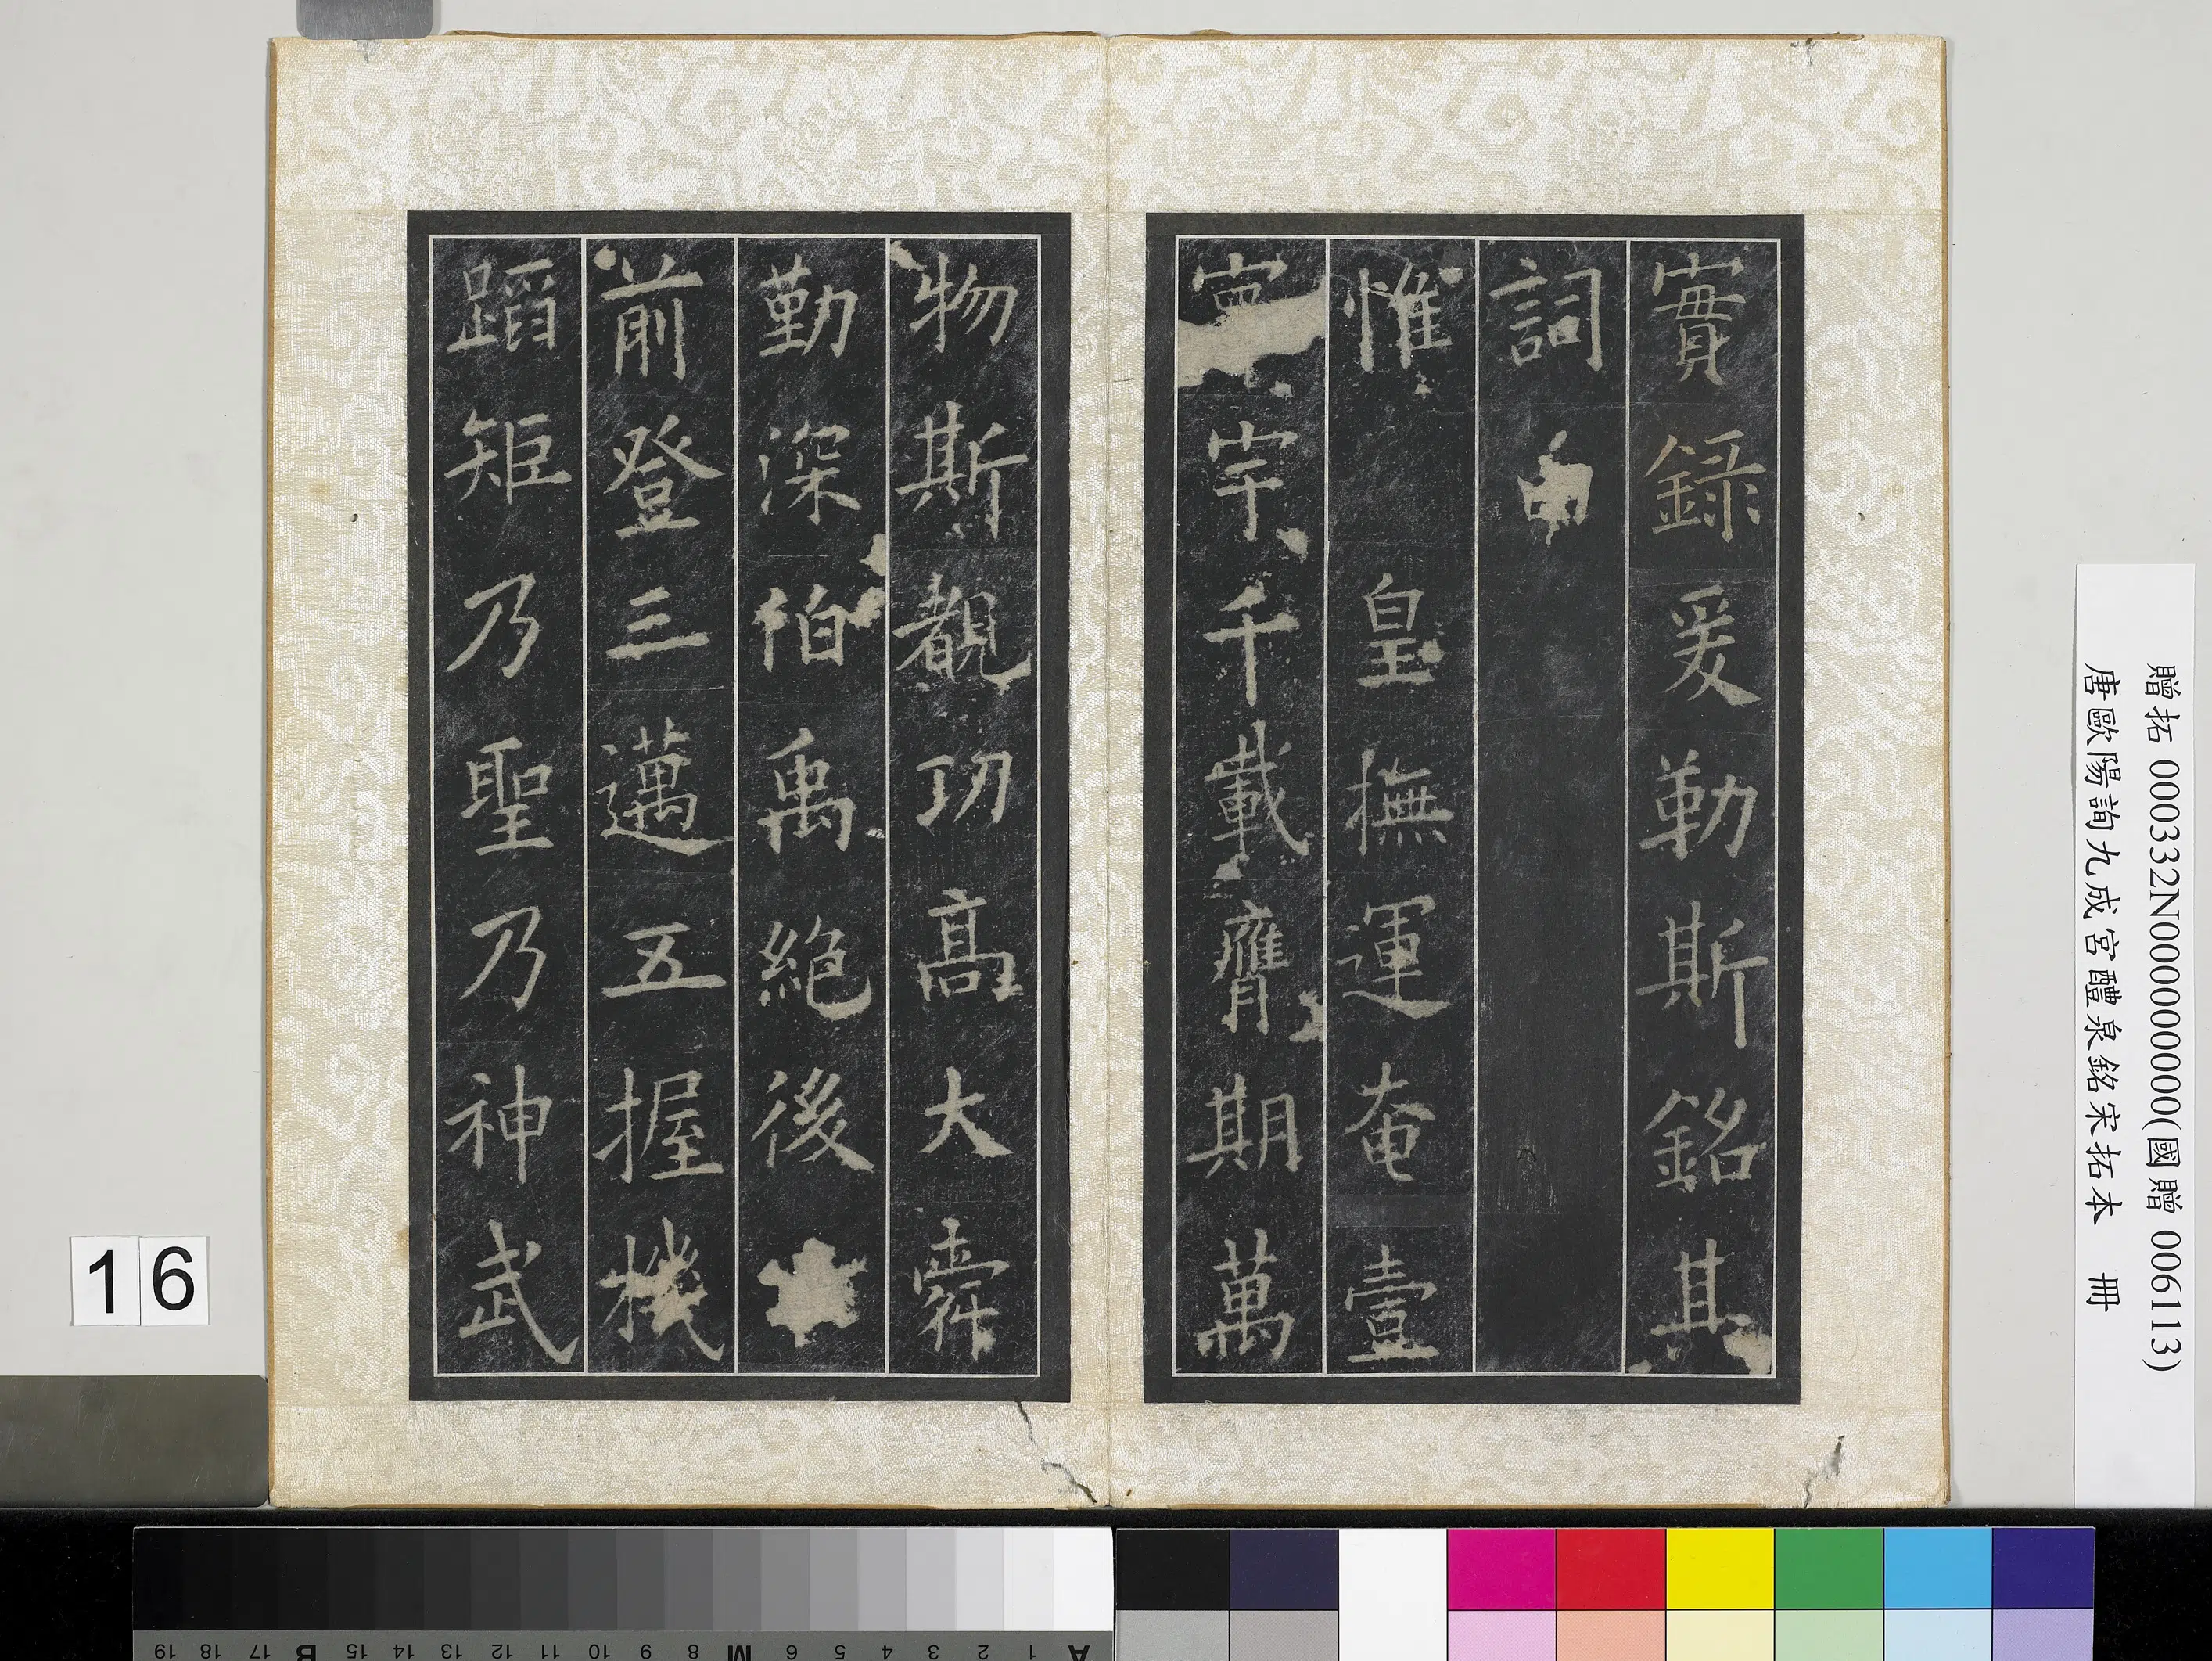 實錄爰勒斯銘其
詞曰
惟皇撫運奄壹
寰宇千載膺期萬
物斯覩功高大舜
勤深伯禹絕後
前登三邁五握機
蹈矩乃聖乃神武
贈拓 000332N000000000(國贈 006113)
唐歐陽詢九成宮醴泉銘宋拓本 冊
16
A 1 2 3 4 5 6 M 8 9 10 11 12 13 14 15 B 17 18 19